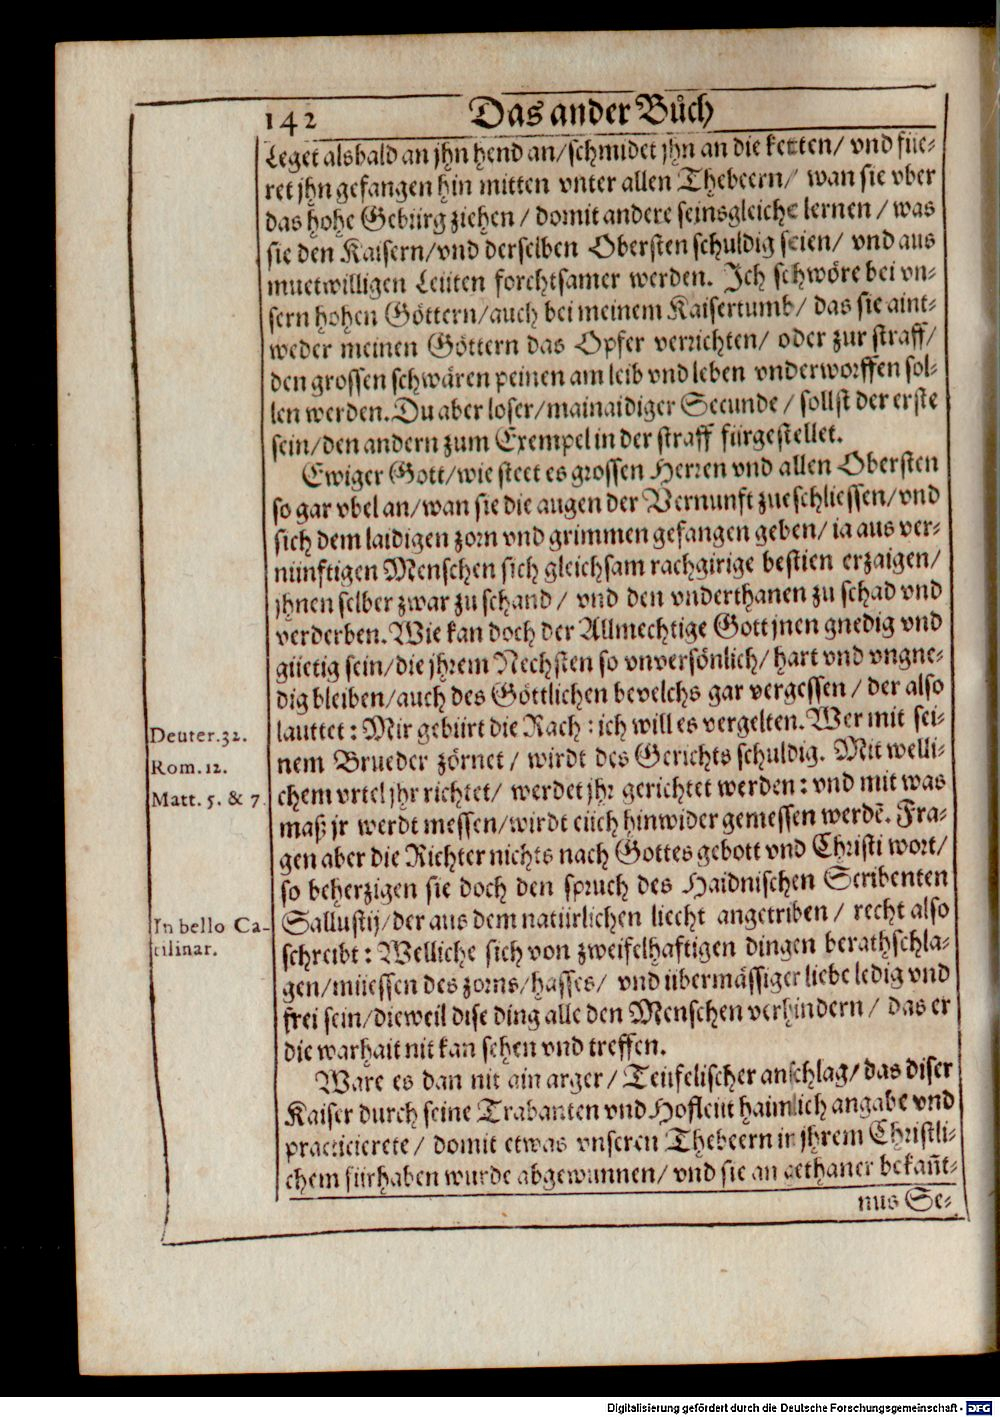 142 Das ander Bůch
Leget alsbald an jhn hend an/schmidet jhn an die ketten/ vnd füe-
ret jhn gefangen hin mitten vnter allen Thebeern/ wan sie vber
das hohe Gebürg ziehen/ domit andere seinsgleiche lernen/ was
sie den Kaisern/vnd derselben Obersten schuldig seien/ vnd aus
muetwilligen Leüten forchtsamer werden. Ich schwöre bei vn-
sern hohen Göttern/auch bei meinem Kaisertumb/ das sie aint-
weder meinen Göttern das Opfer verrichten/ oder zur straff/
den grossen schwären peinen am leib vnd leben vnderworffen sol-
len werden. Du aber loser/mainaidiger Secunde/ sollst der erste
sein/den andern zum Exempel in der straff fürgestellet.
Ewiger Gott/wie steet es grossen Herren vnd allen Obersten
so gar vbel an/wan sie die augen der Vernunft zueschliessen/vnd
sich dem laidigen zorn vnd grimmen gefangen geben/ ia aus ver-
nünftigen Menschen sich gleichsam rachgirige bestien erzaigen/
jhnen selber zwar zu schand/ vnd den vnderthanen zu schad vnd
verderben. Wie kan doch der Allmechtige Gott jnen gnedig vnd
güetig sein/die jhrem Nechsten so vnversönlich/ hart vnd vngne-
dig bleiben/auch des Göttlichen bevelchs gar vergessen/ der also
Deuter.32. lauttet: Mir gebürt die Rach: ich will es vergelten. Wer mit sei-
Rom.12. nem Brueder zörnet/ wirdt des Gerichts schuldig. Mit welli-
Matt. 5. & 7. chem vrtel jhr richtet/ werdet jhr gerichtet werden: vnd mit was
maß jr werdt messen/wirdt eüch hinwider gemessen werdē. Fra-
gen aber die Richter nichts nach Gottes gebott vnd Christi wort/
so beherzigen sie doch den spruch des Haidnischen Scribenten
In bello Ca- Sallustij/der aus dem natürlichen liecht angetriben/ recht also
tilinar. schreibt: Welliche sich von zweifelhaftigen dingen berathschla-
gen/müessen des zorns/hasses/ vnd übermässiger liebe ledig vnd
frei sein/dieweil dise ding alle den Menschen verhindern/ das er
die warhait nit kan sehen vnd treffen.
Ware es dan nit ain arger/ Teüfelischer anschlag/das diser
Kaiser durch seine Trabanten vnd Hofleüt haimlich angabe vnd
practicierete/ domit etwas vnseren Thebeern in jhrem Christli-
chem fürhaben wurde abgewunnen/ vnd sie an gethaner bekañt-
nus Se-
Digitalisierung gefördert durch die Deutsche Forschungsgemeinschaft - DFG